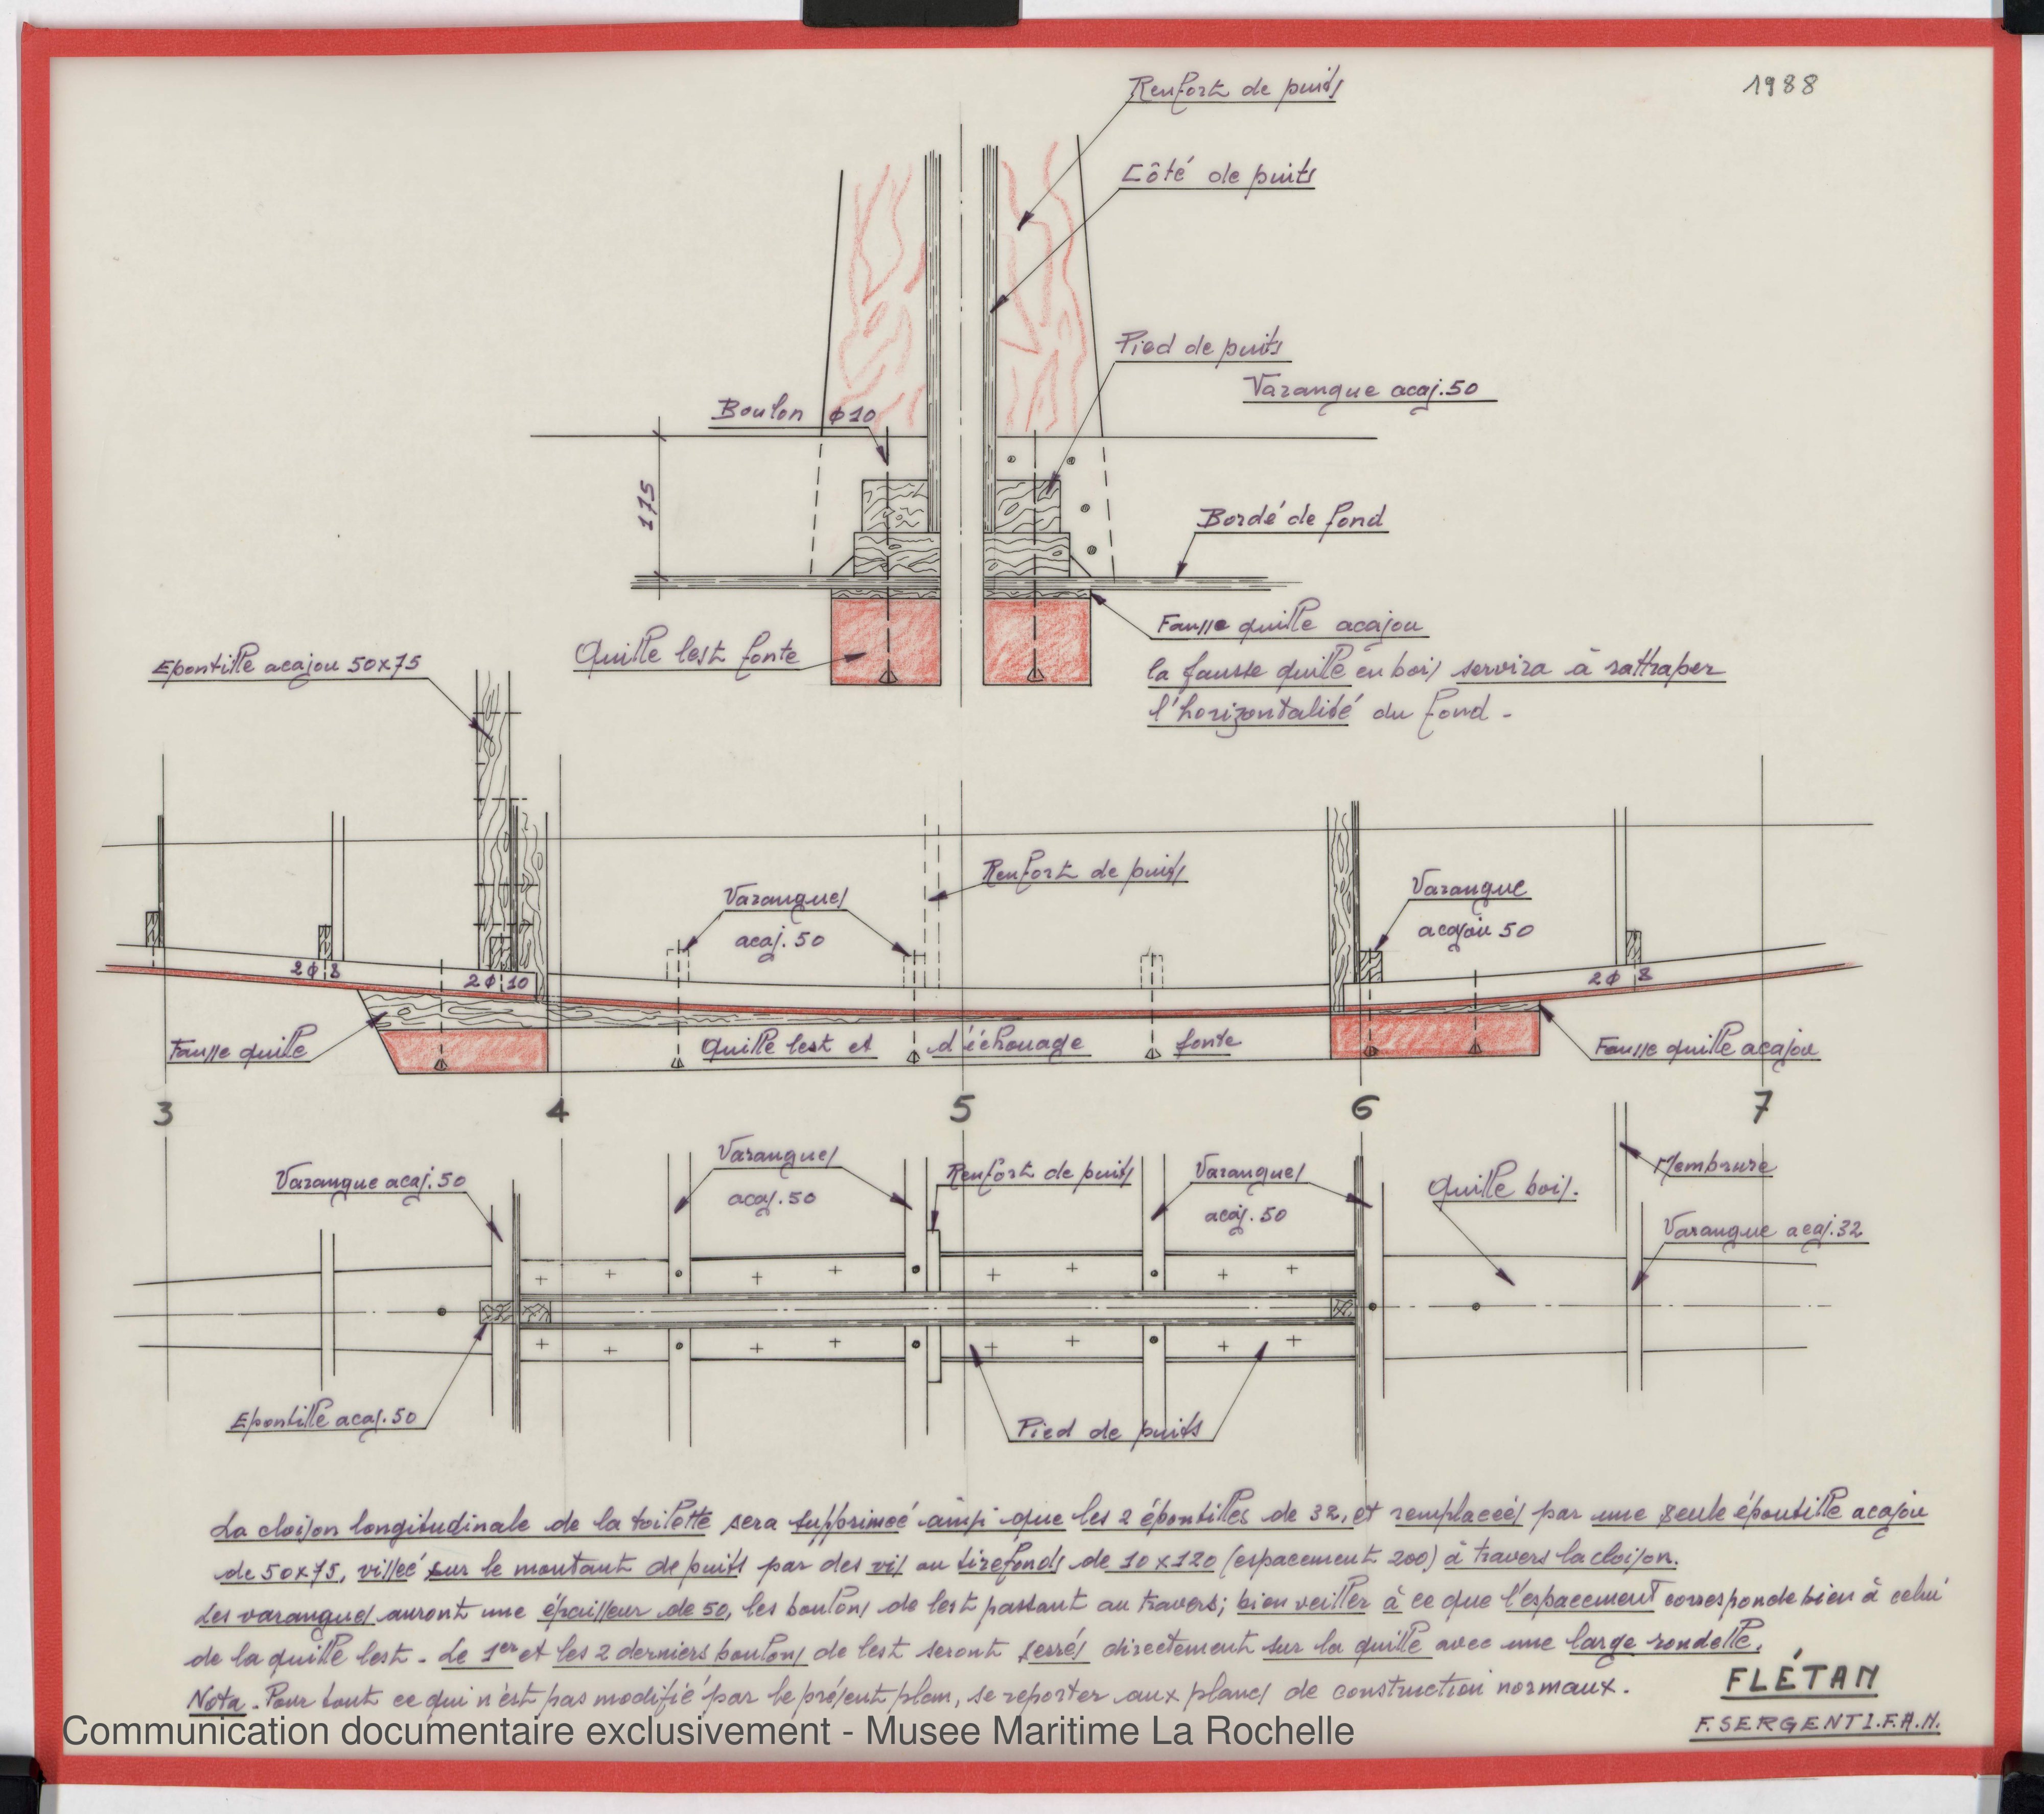 1988
Renfort de puits
Côté de puits
Pied de puits
Varangue acaj.50
Boulon ϕ10
175
Bordé de fond
Fausse quille acajou
la fausse quille en bois servira à rattraper
l'horizontalité du fond -
Quille lest fonte
Epontille acajou 50x75
Renfort de puits
Varangues
acaj. 50
Varangue
acajou 50
2ϕ 8
2ϕ 10
2ϕ 8
Fausse quille
Quille lest et d'échouage fonte
Fausse quille acajou
3 4 5 6 7
Varangue acaj.50
Varangues
acaj.50
Renfort de puits
Varangues
acaj.50
Quille bois.
Membrure
Varangue acaj.32
Epontille acaj.50
Pied de puits
La cloison longitudinale de la toilette sera supprimée ainsi que les 2 épontilles de 32, et remplacées par une seule épontille acajou
de 50x75, vissée sur le montant de puits par des vis ou tirefonds de 10x120 (espacement 200) à travers la cloison.
Les varangues auront une épaisseur de 50, les boulons de lest passant au travers; bien veiller à ce que l'espacement corresponde bien à celui
de la quille lest - Le 1er et les 2 derniers boulons de lest seront serrés directement sur la quille avec une large rondelle.
Nota - Pour tout ce qui n'est pas modifié par le présent plan, se reporter aux plans de construction normaux.
FLÉTAN
F. SERGENT I.F.A.N.
Communication documentaire exclusivement - Musee Maritime La Rochelle